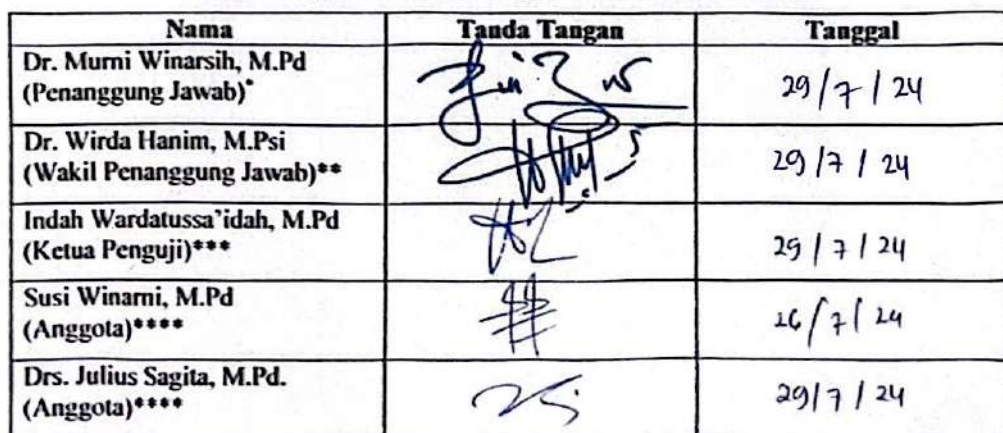 Nama Tanda Tangan Tanggal
Dr. Murni Winarsih, M.Pd
(Penanggung Jawab)* 29/7/24
Dr. Wirda Hanim, M.Psi
(Wakil Penanggung Jawab)** 29/7/24
Indah Wardatussa'idah, M.Pd
(Ketua Penguji)*** 29/7/24
Susi Winarni, M.Pd
(Anggota)**** 26/7/24
Drs. Julius Sagita, M.Pd.
(Anggota)**** 29/7/24